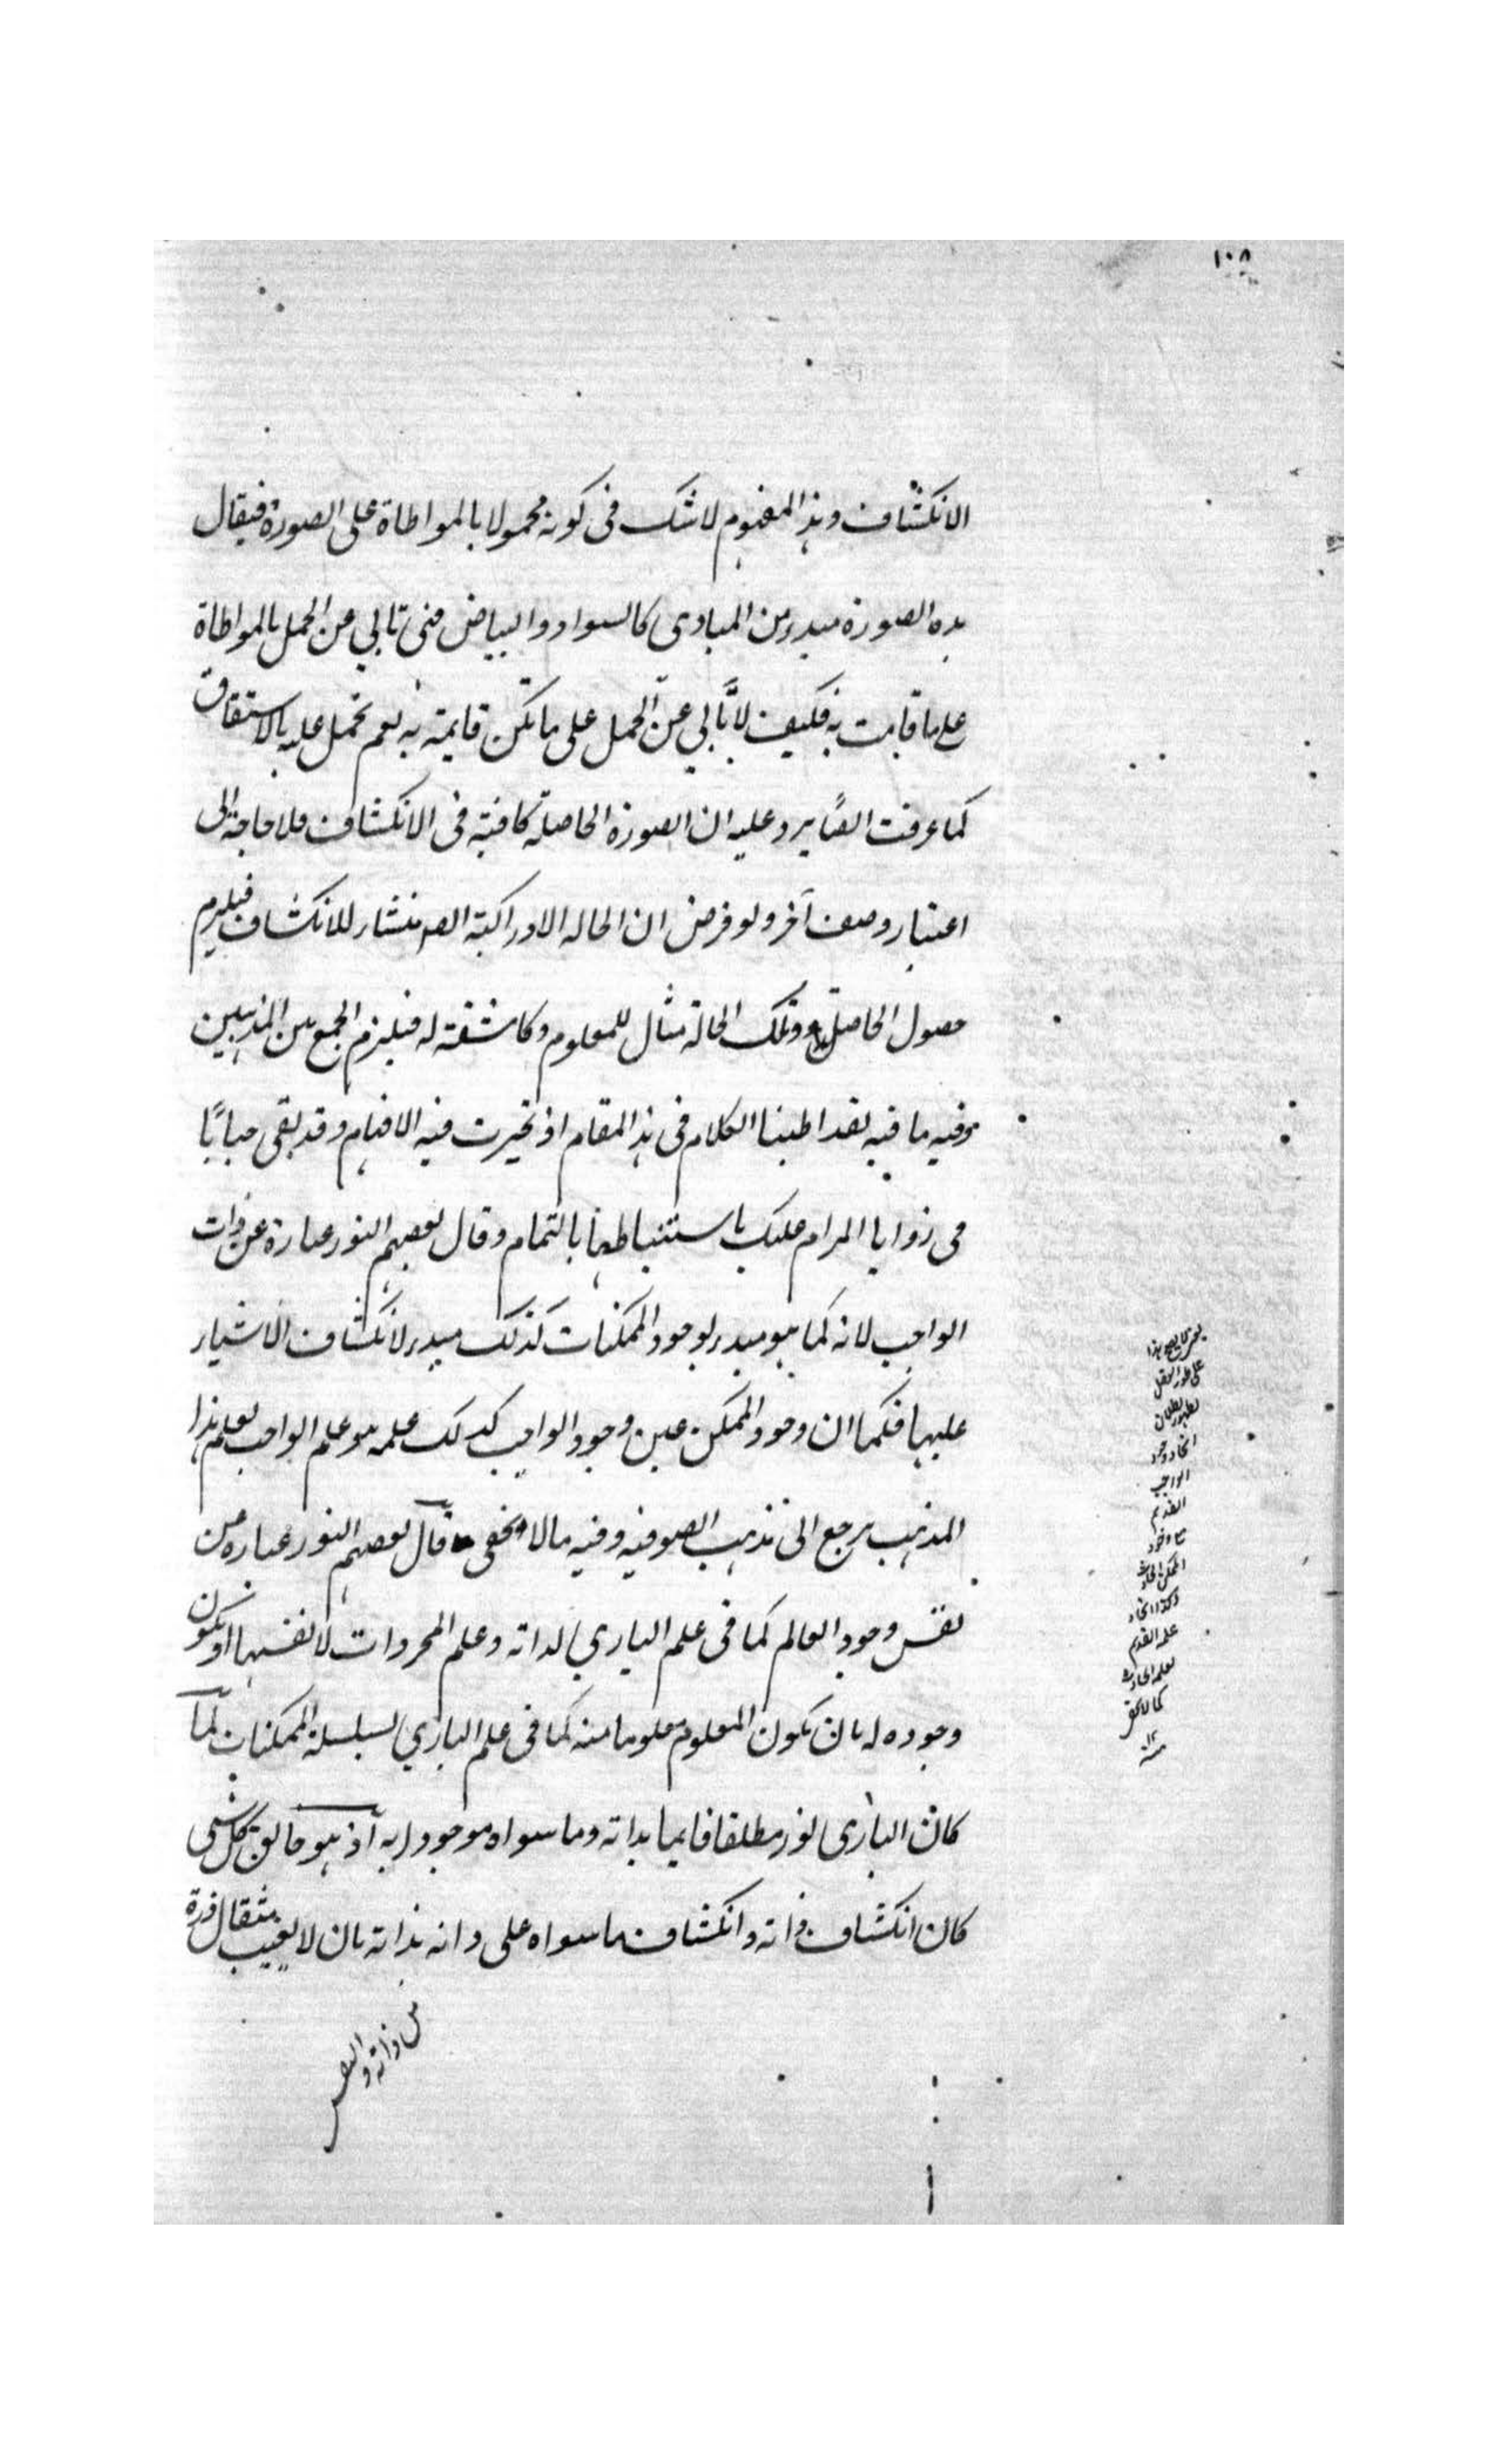 ١٠٨
الانكشاف وهذا المفهوم لا شك فى كونه محمولا بالمواطاة على الصورة فيقال
هذه الصورة مبدء من المبادى كالسواد والبياض فهى تابي عن الحمل بالمواطاة
على ما قامت به فكيف لا تابي عن الحمل على ما تكن قايمة به نعم تحمل عليه بالاشتقاق
كما عرفت ايضًا يرد عليه ان الصورة الحاصلة كافية فى الانكشاف فلا حاجة الى
اعتبار وصف آخر ولو فرض ان الحالة الادراكية منشار للانكشاف فيلزم
حصول الحاصل وتلك الحالة مثال للمعلوم وكاشفة له فيلزم الجمع بين المذهبين
وفيه ما فيه لقد اطنبنا الكلام فى هذا المقام اذ تحيرت فيه الافهام وقد بقى خبايًا
فى زوايا المرام عليك باستنباطها بالتمام وقال بعضهم النور عبارة عن ذات
الواجب لانه كما هو مبدء لوجود الممكنات كذلك مبدء لانكشاف الاشياء
عليها فكما ان وجود الممكن عين وجود الواجب كذلك علمه هو علم الواجب بعلم هذا
المذهب يرجع الى مذهب الصوفيه وفيه ما لا يخفى قال بعضهم النور عباره عن
نفس وجود العالم كما فى علم الباري لذاته وعلم المجردات لانفسها او يكون
وجوده له بان يكون المعلوم معلوما منه كما فى علم الباري لسلسلة الممكنات لما
كان البارى نور مطلقا قايما بذاته وما سواه موجود به اذ هو خالق كل شى
كان انكشاف ذاته وانكشاف ما سواه على ذاته بذاته بان لا يغيب مثقال ذرة
من ذاته و
هذا
على طور العقل
لظهور بطلان
اتحاد وجود
الواجب
القديم
مع وجود
الممكن الحادث
وكذا اتحاد
علمه القديم
بعلمه الحادث
كما لا يخفى
١٢
منه